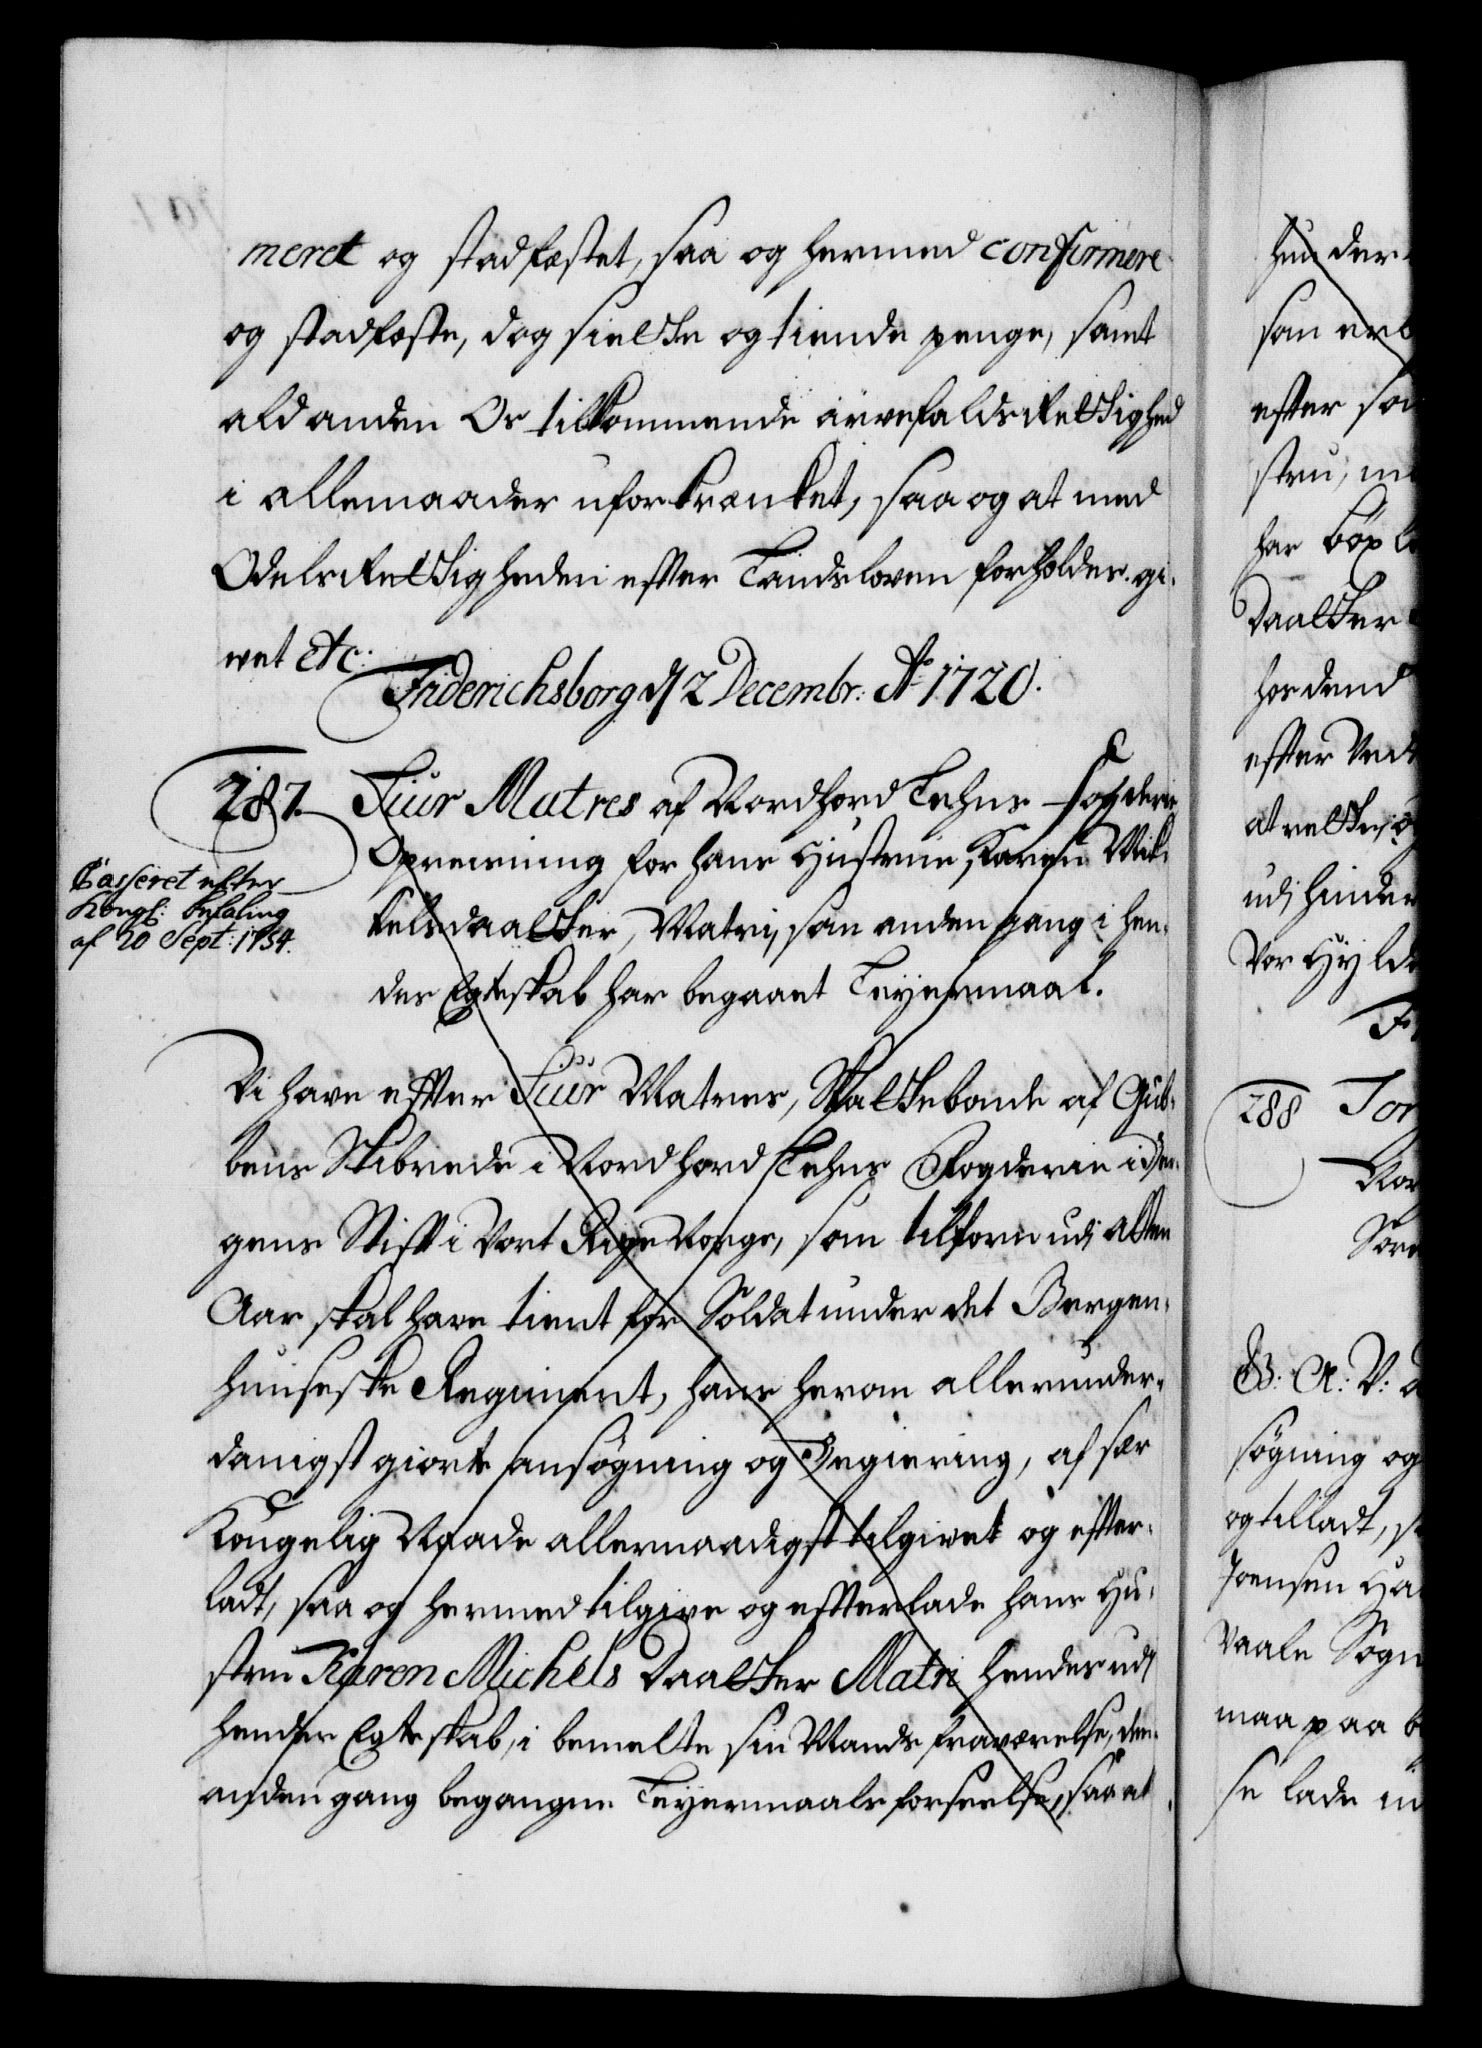 meret og stadfæstet, saa og hermed confirmere
og stadfæste, dog siette og tiende penge, samt
ald anden Os tilkommende arvefalds Rettighed
i allemaader uforkrænket, saa og at med
Odels Rettigheden efter Landsloven forholdes. gi-
vet etc:
Friderichsborg d 2 Decembr: Ao 1720.
287. Siur Matres af Nordhord Lehns Fogderie
Opreisning for hans Hustrue Karen Mik-
kelsdaatter, Matri, som anden gang i hen-
des Egteskab har begaaet Leyermaal.
Casseret efter
Kongl: befaling
af 20 Sept: 1734.
Vi have efter Siur Matres, Skattebonde af Gul-
bens Skibrede i Nordhord Lehns Fogderie i Ber-
gens Stift i Vort Rige Norge, som tilforn udi otte
Aar skal have tient for Soldat under det Bergen-
huuseske Regiment, hans herom allerunder-
danigst giorte ansøgning og Begiering, af sær
Kongelig Naade allernaadigst tilgivet og efter-
ladt, saa og hermed tilgive og efterlade hans Hu-
strue Karen Michels Daatter Matri hendes udi
hendes Egteskab, i bemelte sin Mands fraværelse, den
anden gang begangne Leyermaals forseelse, saa at
hun der
som er
efter so
stru, m
har
Daatter
hos dend
efter Ved
at rette,
udi hinder
Vor Hylde
F
288 Tor
Nor
Sor
G: A: V:
søgning og
og tilladt, s
Joensen Ha
Vaale Sogn
maa paa
se lade in